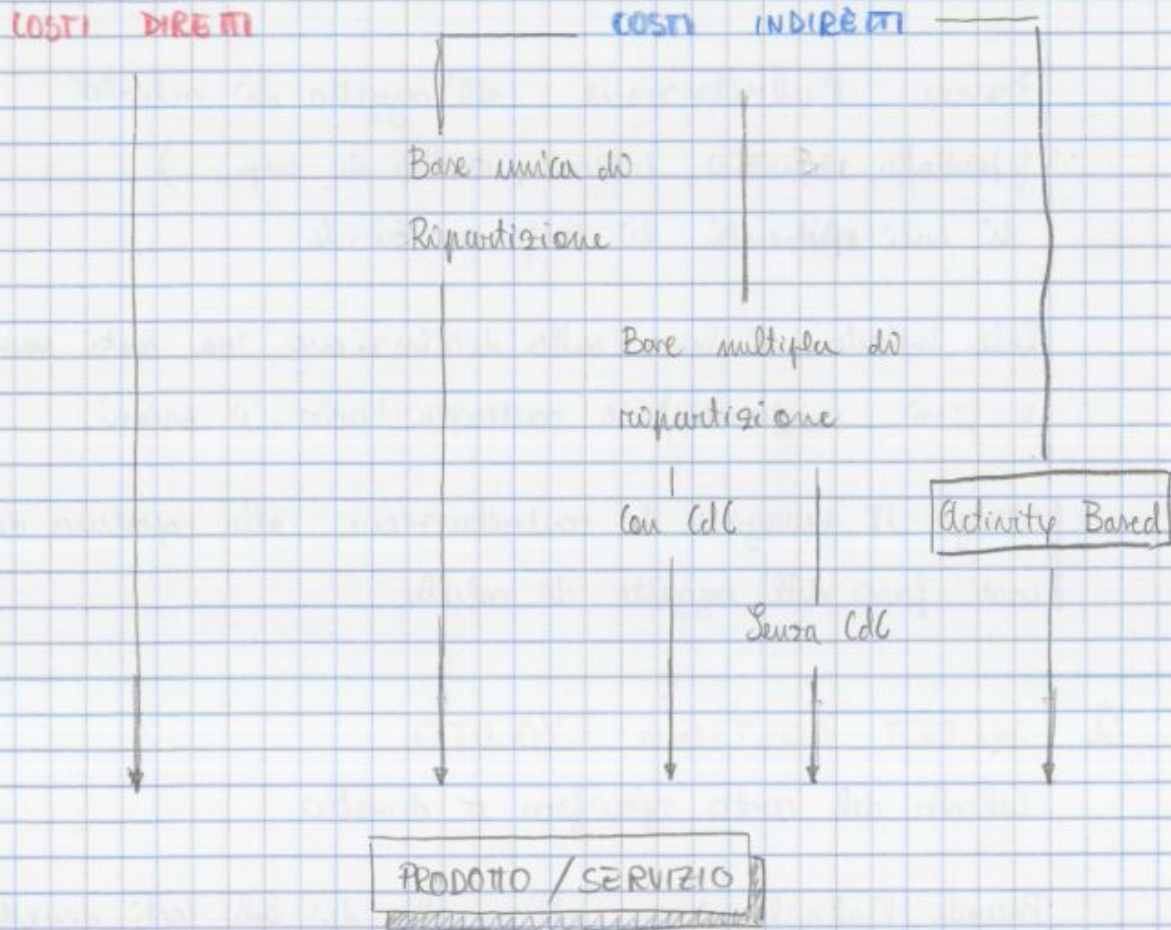 COSTI DIRETTI
COSTI INDIRETTI
Base unica di
Ripartizione
Base multipla di
ripartizione
Con CdC
Senza CdC
Activity Based
PRODOTTO / SERVIZIO